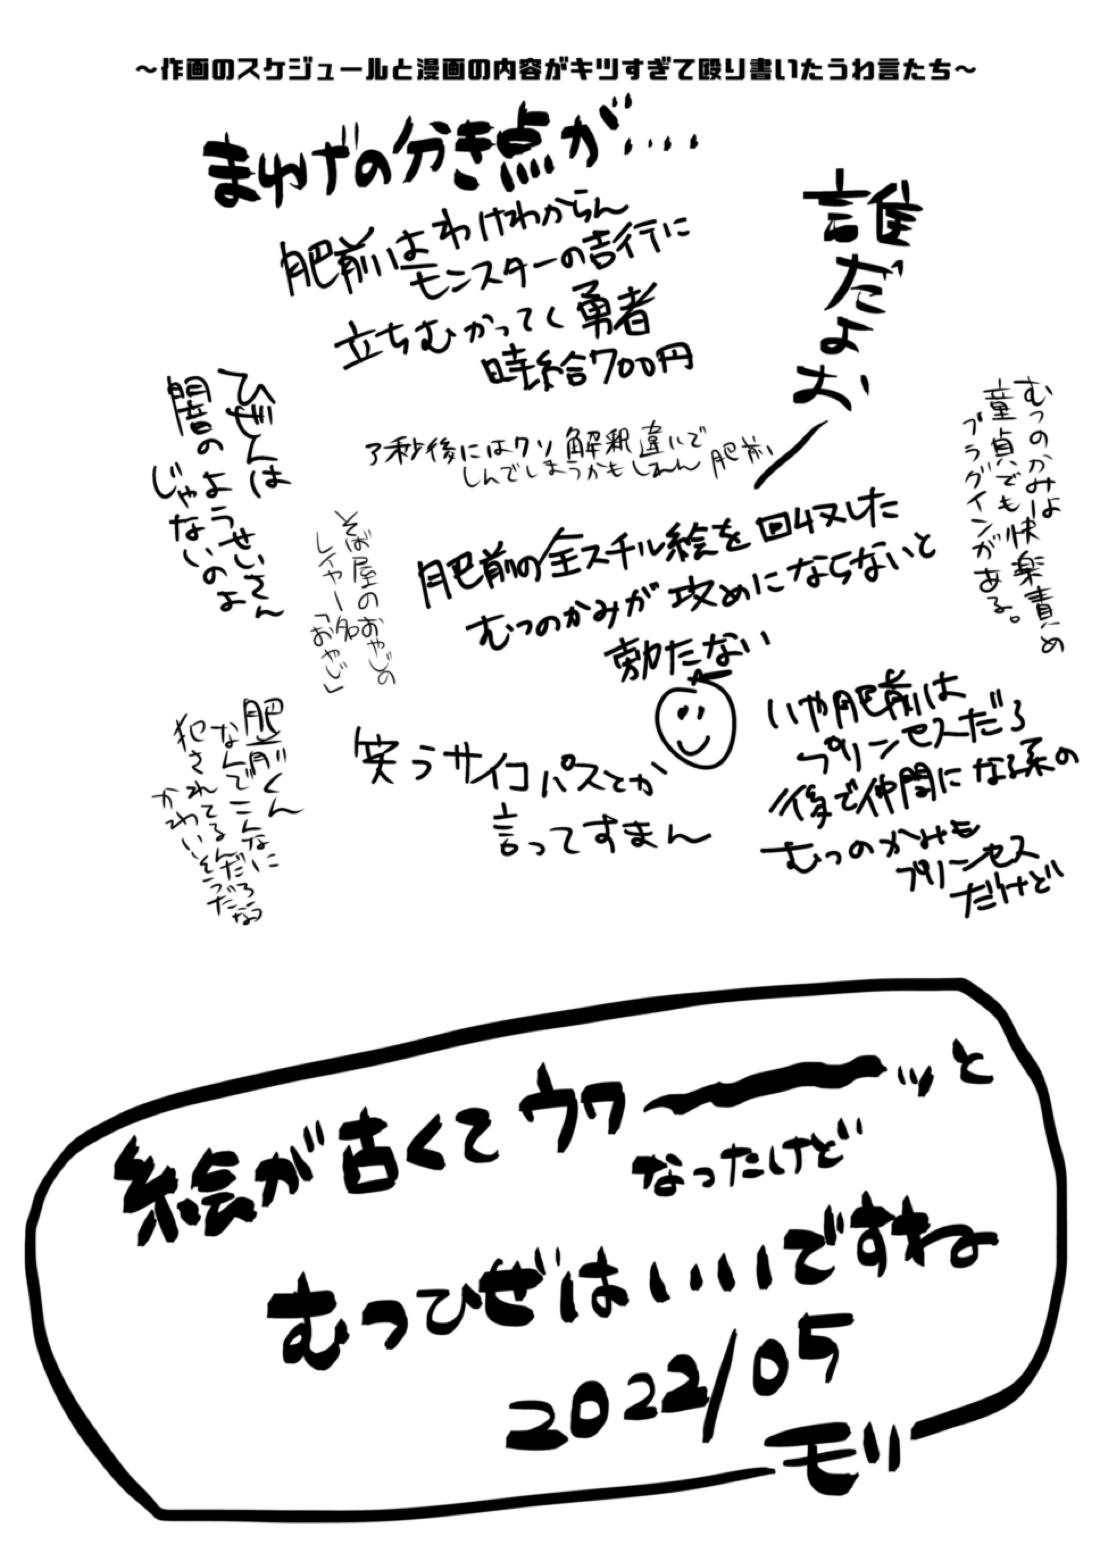 ～作画のスケジュールと漫画の内容がキツすぎて殴り書いたうわ言たち～
まゆげの分き点が‥‥
肥前はわけわからん
モンスターの吉行に
立ちむかってく勇者
時給700円
誰だよお
ひぜんは
闇のようせいさん
じゃないのよ
3秒後にはクソ解釈違いで
しんでしまうかもしれん肥前
むつのかみは
童貞でも快楽責め
プラグインがある。
そば屋のおやじの
レイヤー名
「おやじ」
肥前の全スチル絵を回収した
むつのかみが攻めにならないと
勃たない
肥前くん
なんでこんなに
犯されてるんだろな
かわいそうだなっ
笑うサイコパスとか
言ってすまん
いや肥前は
プリンセスだろ
後で仲間になる系の
むつのかみも
プリンセス
だけど
絵が古くてウワーーーッと
なったけど
むつひぜはいいですね
2022/05
モリ